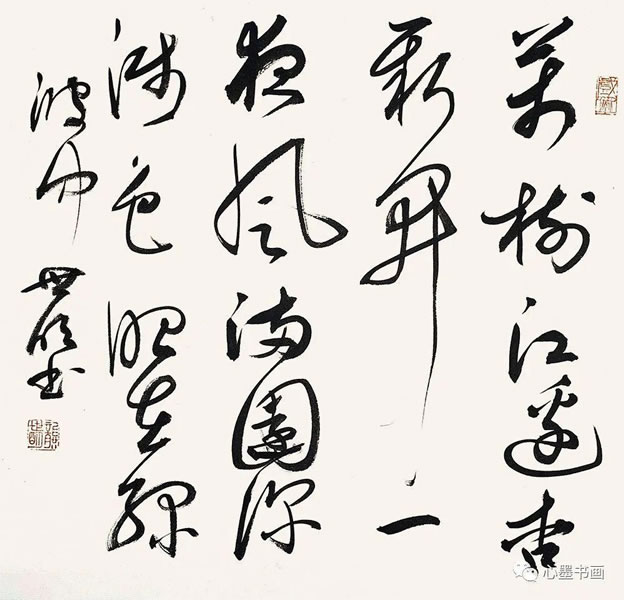 萬樹江邊杏
新開一
夜風滿園深
淺色照在綠
波中
世 書
心墨书画